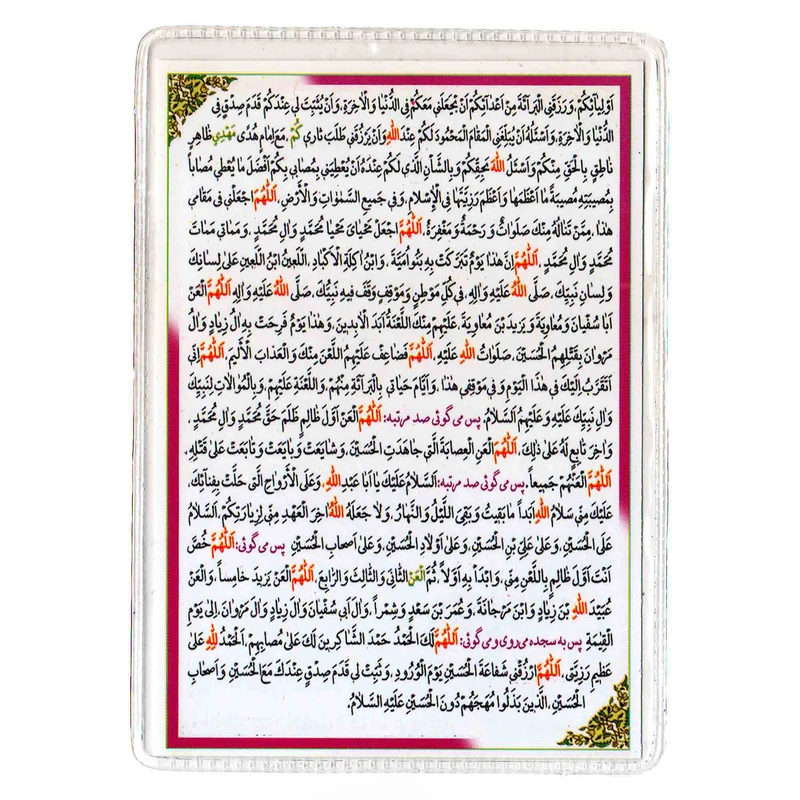 اَوْلِيآئِكُمْ، وَرَزَقَنِى الْبَرآئَةَ مِنْ اَعْدآئِكُمْ اَنْ يَجْعَلَنى مَعَكُمْ فِى الدُّنْيا وَالْاخِرَةِ، وَاَنْ يُثَبِّتَ لى عِنْدَكُمْ قَدَمَ صِدْقٍ فِى
الدُّنْيا وَالْاخِرَةِ، وَاَسْئَلُهُ اَنْ يُبَلِّغَنِى الْمَقامَ الْمَحْمُودَ لَكُمْ عِنْدَ اللهِ وَاَنْ يَرْزُقَنى طَلَبَ ثارى كُمْ، مَعَ اِمامٍ هُدًى مَهْدِيٍ ظاهِرٍ
ناطِقٍ بِالْحَقِّ مِنْكُمْ وَاَسْئَلُ اللهَ بِحَقِّكُمْ وَبِالشَّاْنِ الَّذى لَكُمْ عِنْدَهُ اَنْ يُعْطِيَنى بِمُصابى بِكُمْ اَفْضَلَ ما يُعْطى مُصاباً
بِمُصيبَتِهِ مُصيبَةً ما اَعْظَمَها وَاَعْظَمَ رَزِيَّتَها فِى الْاِسْلامِ، وَفى جَميعِ السَّمٰواتِ وَالْاَرْضِ، اَللّٰهُمَّ اجْعَلْنى فى مَقامى
هذا، مِمَّنْ تَنالُهُ مِنْكَ صَلَواتٌ وَرَحْمَةٌ وَمَغْفِرَةٌ، اَللّٰهُمَّ اجْعَلْ مَحْياىَ مَحْيا مُحَمَّدٍ وَالِ مُحَمَّدٍ، وَمَماتى مَماتَ
مُحَمَّدٍ وَالِ مُحَمَّدٍ، اَللّٰهُمَّ اِنَّ هذا يَوْمٌ تَبَرَّكَتْ بِهِ بَنُو اُمَيَّةَ، وَابْنُ اكِلَةِ الْاَكْبادِ، اللَّعينُ ابْنُ اللَّعينِ عَلى لِسانِكَ
وَلِسانِ نَبِيِّكَ، صَلَّى اللهُ عَلَيْهِ وَالِهِ، فى كُلِّ مَوْطِنٍ وَمَوْقِفٍ وَقَفَ فيهِ نَبِيُّكَ، صَلَّى اللهُ عَلَيْهِ وَالِهِ اَللّٰهُمَّ الْعَنْ
اَبا سُفْيانَ وَمُعاوِيَةَ وَيَزيدَ بْنَ مُعاوِيَةَ، عَلَيْهِمْ مِنْكَ اللَّعْنَةُ اَبَدَ الْابِدينَ، وَهذا يَوْمٌ فَرِحَتْ بِهِ الُ زِيادٍ وَالُ
مَرْوانَ بِقَتْلِهِمُ الْحُسَيْنَ، صَلَواتُ اللهِ عَلَيْهِ، اَللّٰهُمَّ فَضاعِفْ عَلَيْهِمُ اللَّعْنَ مِنْكَ وَالْعَذابَ الْاَليمَ، اَللّٰهُمَّ اِنّى
اَتَقَرَّبُ اِلَيْكَ فى هذَا الْيَوْمِ وَفى مَوْقِفى هذا، وَاَيّامِ حَياتى بِالْبَرآئَةِ مِنْهُمْ، وَاللَّعْنَةِ عَلَيْهِمْ، وَبِالْمُوالاتِ لِنَبِيِّكَ
وَالِ نَبِيِّكَ عَلَيْهِ وَعَلَيْهِمُ السَّلامُ. پس می گوئی صد مرتبه: اَللّٰهُمَّ الْعَنْ اَوَّلَ ظالِمٍ ظَلَمَ حَقَّ مُحَمَّدٍ وَالِ مُحَمَّدٍ،
وَاخِرَ تابِعٍ لَهُ عَلى ذلِكَ، اَللّٰهُمَّ الْعَنِ الْعِصابَةَ الَّتى جاهَدَتِ الْحُسَيْنَ، وَشايَعَتْ وَبايَعَتْ وَتابَعَتْ عَلى قَتْلِهِ،
اَللّٰهُمَّ الْعَنْهُمْ جَميعاً. پس می گوئی صد مرتبه: اَلسَّلامُ عَلَيْكَ يا اَبا عَبْدِ اللهِ، وَعَلَى الْاَرْواحِ الَّتى حَلَّتْ بِفِنآئِكَ،
عَلَيْكَ مِنّى سَلامُ اللهِ اَبَداً ما بَقيتُ وَبَقِىَ اللَّيْلُ وَالنَّهارُ، وَلا جَعَلَهُ اللهُ اخِرَ الْعَهْدِ مِنّى لِزِيارَتِكُمْ، اَلسَّلامُ
عَلَى الْحُسَيْنِ، وَعَلى عَلِىِّ بْنِ الْحُسَيْنِ، وَعَلى اَوْلادِ الْحُسَيْنِ، وَعَلى اَصحابِ الْحُسَيْنِ پس می گوئی: اَللّٰهُمَّ خُصَّ
اَنْتَ اَوَّلَ ظالِمٍ بِاللَّعْنِ مِنّى، وَابْدَأْ بِهِ اَوَّلاً، ثُمَّ الْعَنْ الثّانِىَ وَالثّالِثَ وَالرّابِعَ، اَللّٰهُمَّ الْعَنْ يَزيدَ خامِساً، وَالْعَنْ
عُبَيْدَ اللهِ بْنَ زِيادٍ وَابْنَ مَرْجانَةَ، وَعُمَرَ بْنَ سَعْدٍ وَشِمْراً، وَالَ اَبى سُفْيانَ وَالَ زِيادٍ وَالَ مَرْوانَ، اِلى يَوْمِ
الْقِيٰمَةِ پس به سجده می روی و می گوئی: اَللّٰهُمَّ لَكَ الْحَمْدُ حَمْدَ الشّاكِرينَ لَكَ عَلى مُصابِهِمْ، اَلْحَمْدُ لِلّٰهِ عَلى
عَظيمِ رَزِيَّتى، اَللّٰهُمَّ ارْزُقْنى شَفاعَةَ الْحُسَيْنِ يَوْمَ الْوُرُودِ، وَثَبِّتْ لى قَدَمَ صِدْقٍ عِنْدَكَ مَعَ الْحُسَيْنِ وَاَصحابِ
الْحُسَيْنِ، الَّذينَ بَذَلُوا مُهَجَهُمْ دُونَ الْحُسَيْنِ عَلَيْهِ السَّلامُ.